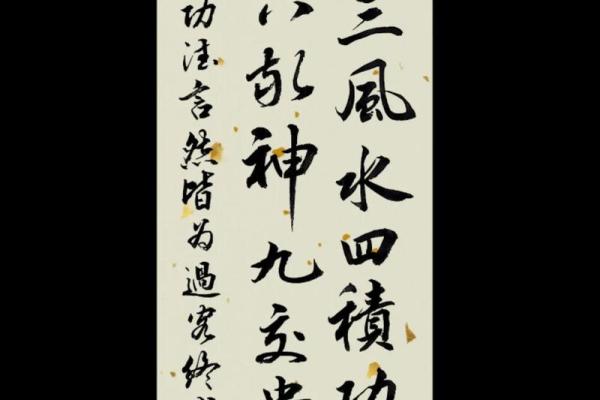 三風水四積功
八敬神九交貴
功言然皆為過客終